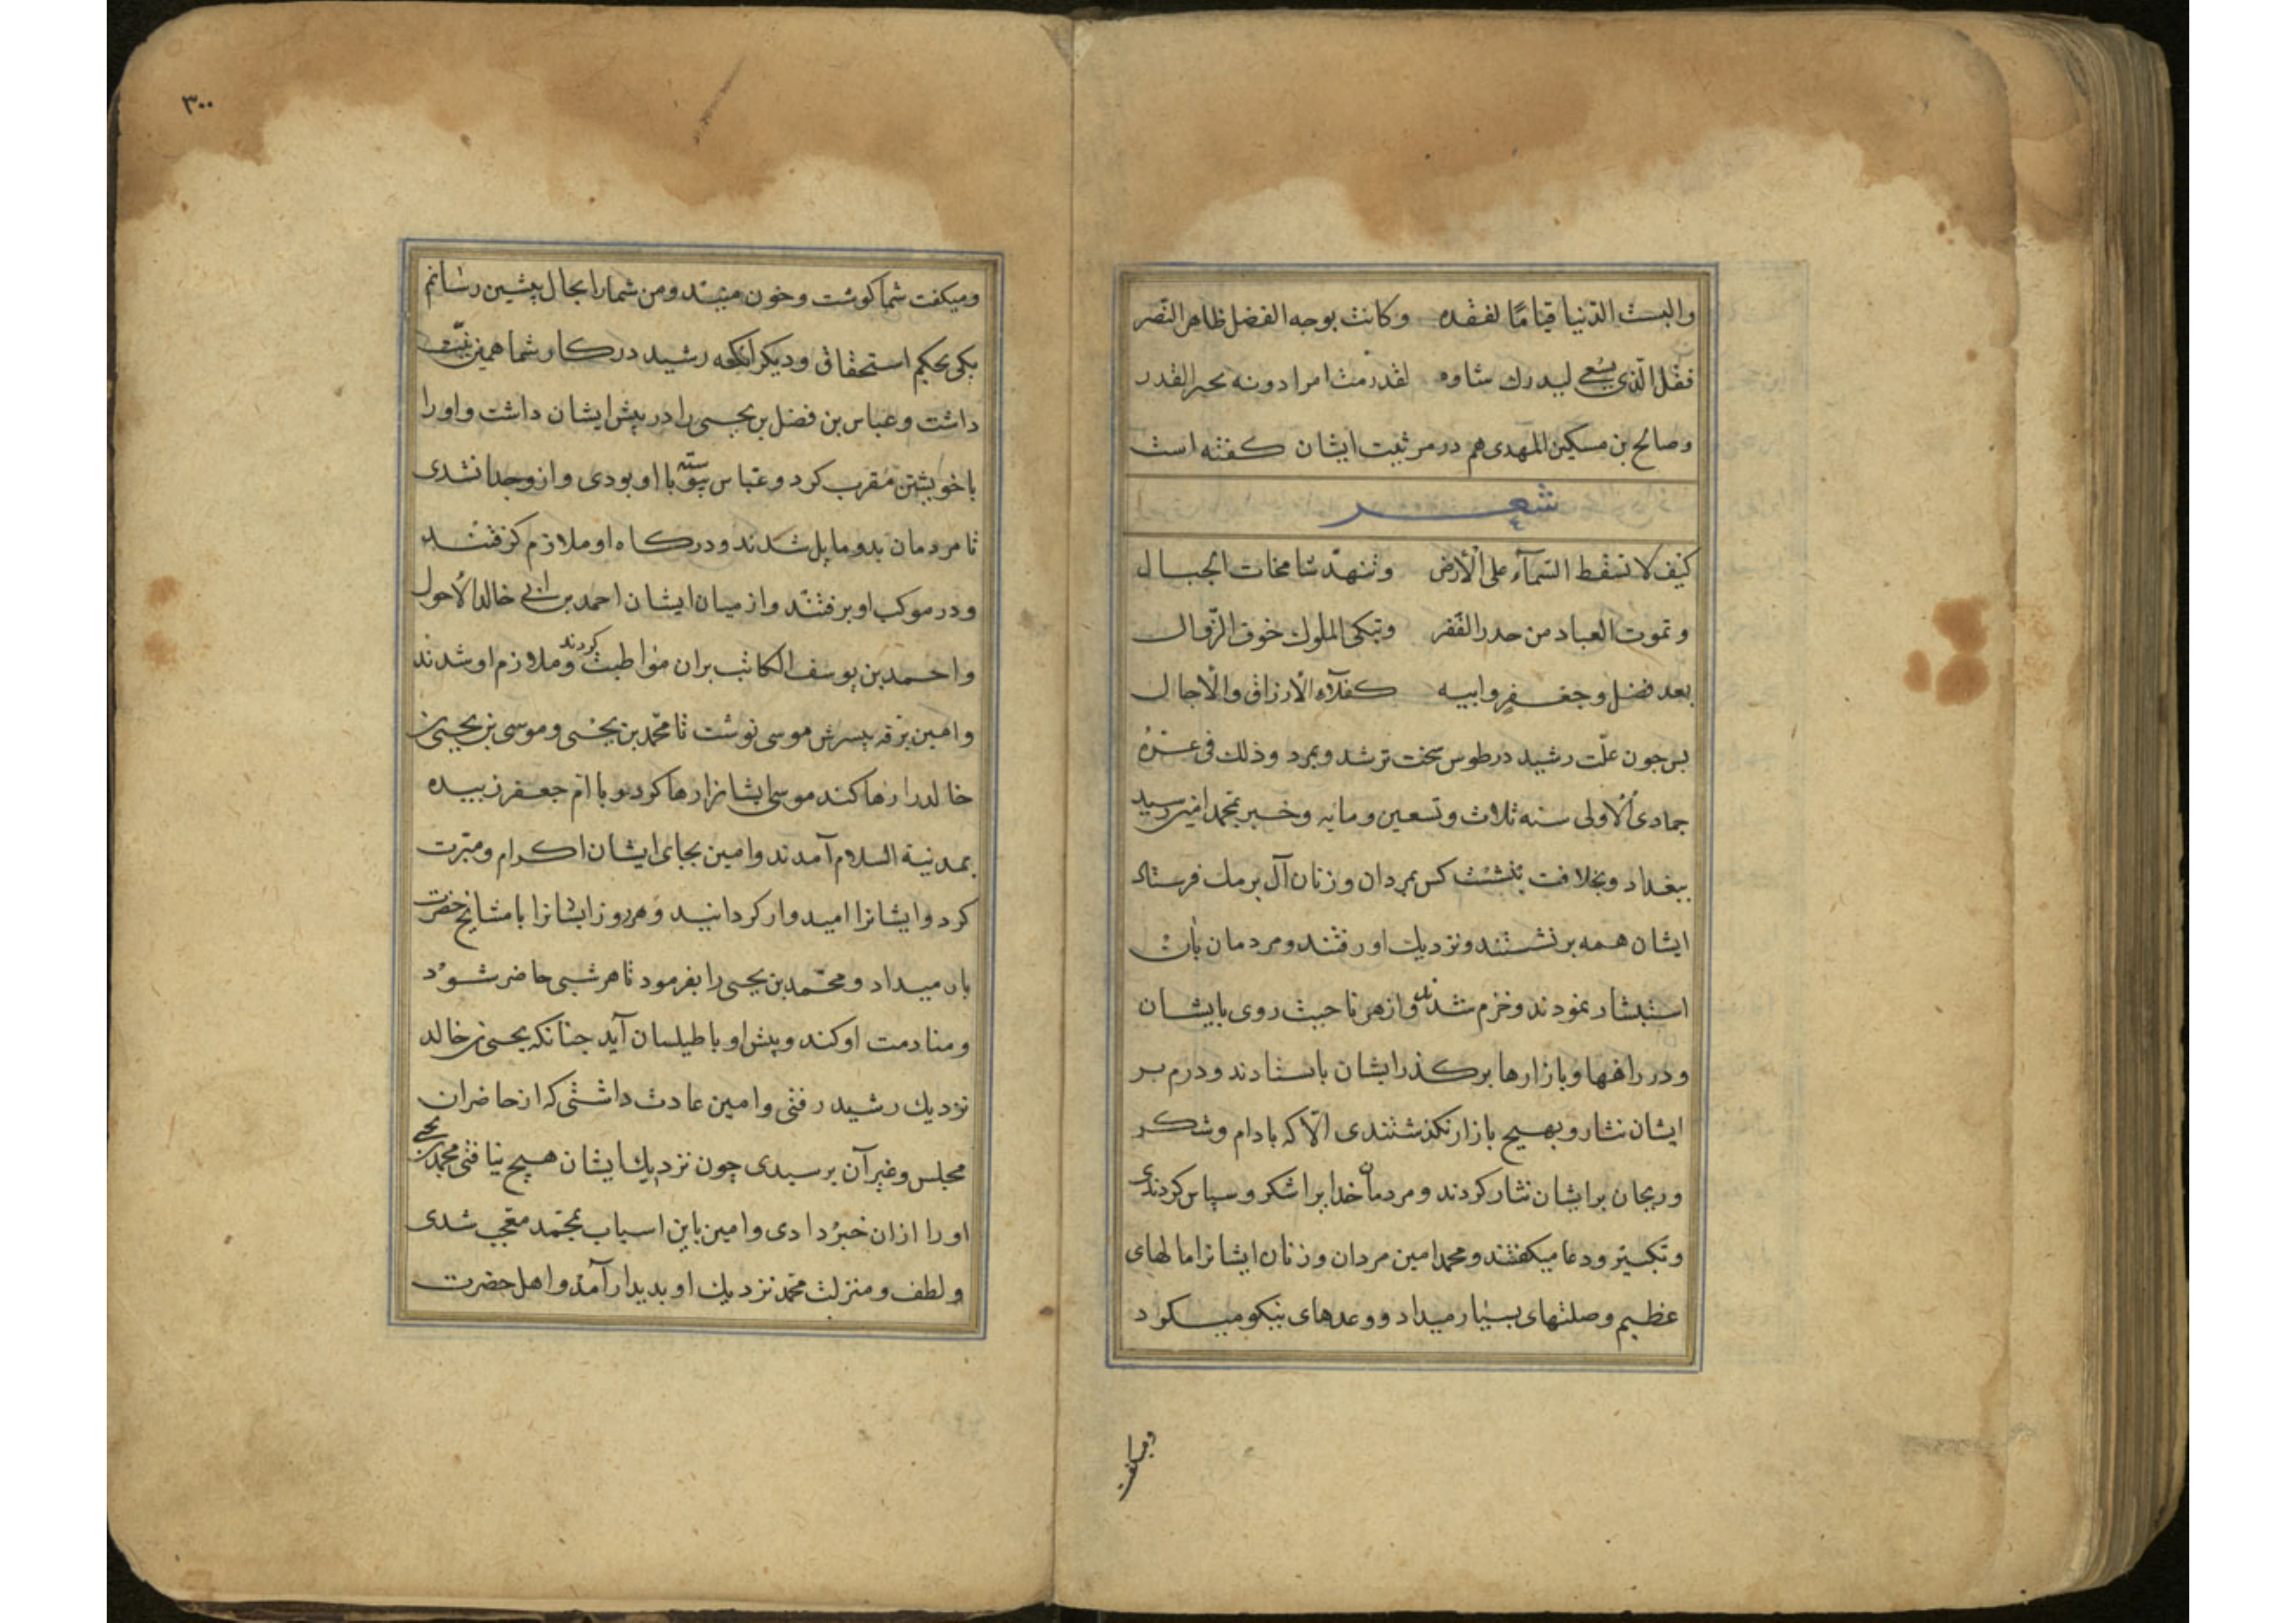 والبست الدّنيا قتامًا لفقده وكانت بوجه الفضل ظاهر النّضر
فقل الّذى يسْعى ليدرك شاوه لقد رمت امرا دونه بحر القدر
وصالح بن مسكين المهدى هم در مرثيت ايشان كفته است
شعر
كيف لا تسقط السّمآء على الْأرض وتنهدّ شامخات الجبال
وتموت العباد من حدر الفقر وتبكى الملوك خوف الزّوال
بعد فضل وجعفر وابيه كفلآء الْأرزاق والْاجال
بس جون علّت رشيد در طوس سخت تر شد وبمرد وذلك فى غرّه
جمادى الْاولى سنه ثلاث وتسعين ومايه وخبر بمحمد امين رسيد
ببغداد وبخلافت بنشست كس بمردان وزنان آل برمك فرستاد
ايشان همه برنشستند ونزديك او رفتند ومردمان بان
استبشار نمودند وخرم شدند وازهر ناحيت روى بايشان
ودر راهها وبازارها بركذر ايشان باستادند ودرم بر
ايشان نثار وبهيچ بازار نكذشتندى الّا كه بادام وشكر
وريحان بر ايشان نثار كردند ومردمان خدايرا شكر وسپاس كردندى
وتكبير ودعا ميكفتند ومحمد امين مردان وزنان ايشانرا مالهاى
عظيم وصلتهاى بسيار ميداد ووعدهاى نيكو ميكرد
وميكفت
٣٠٠
وميكفت شما كوشت وخون منيد ومن شمارا بحال پيشين رسانم
يكى بحكم استحقاق وديكر آنكه رشيد در كار شما همين نيّت
داشت وعباس بن فضل بن يحيى را در پيش ايشان داشت واورا
باخويشتن مقرب كرد وعباس پيوسته با او بودى وازو جدا نشدى
تا مردمان بدو مايل شدند ودركاه او ملازم كرفتند
ودر موكب او برفتند واز ميان ايشان احمد بن ابى خالد الْأحول
واحمد بن يوسف الكاتب بران مواظبت كردند وملازم او شدند
وامين برقه بپسرش موسى نوشت تا محمّد بن يحيى وموسى بن يحيى بن
خالد را رها كند موسى ايشانرا رها كرد وبا امّ جعفر زبيده
بمدينة السلام آمدند وامين بجاى ايشان اكرام ومبرت
كرد وايشانرا اميدوار كردانيد وهر روز ايشانرا با مشايخ حضرت
بار ميداد ومحمّد بن يحيى را بفرمود تا هر شبى حاضر شود
ومنادمت او كند وپيش او با طيلسان آيد جنانكه يحيى بن خالد
نزديك رشيد رفتى وامين عادت داشتى كه از حاضران
مجلس وغير آن پرسيدى چون نزديك ايشان هيچ نيافتى محمد بن يحيى
اورا ازان خبر دادى وامين باين اسباب بمحمّد معجب شدى
ولطف ومنزلت محمّد نزديك او بديدار آمد واهل حضرت